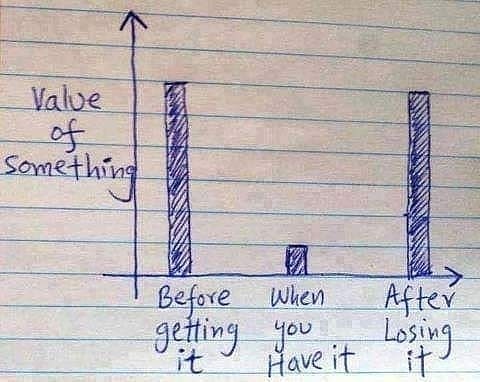 Value
of
Something
Before
getting
it
When
you
Have it
After
Losing
it